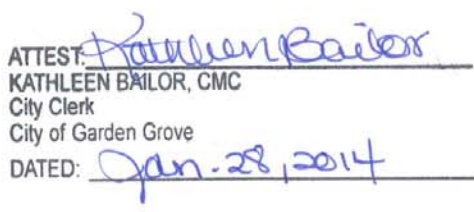 ATTEST: Kathleen Bailor
KATHLEEN BAILOR, CMC
City Clerk
City of Garden Grove
DATED: Jan. 28, 2014